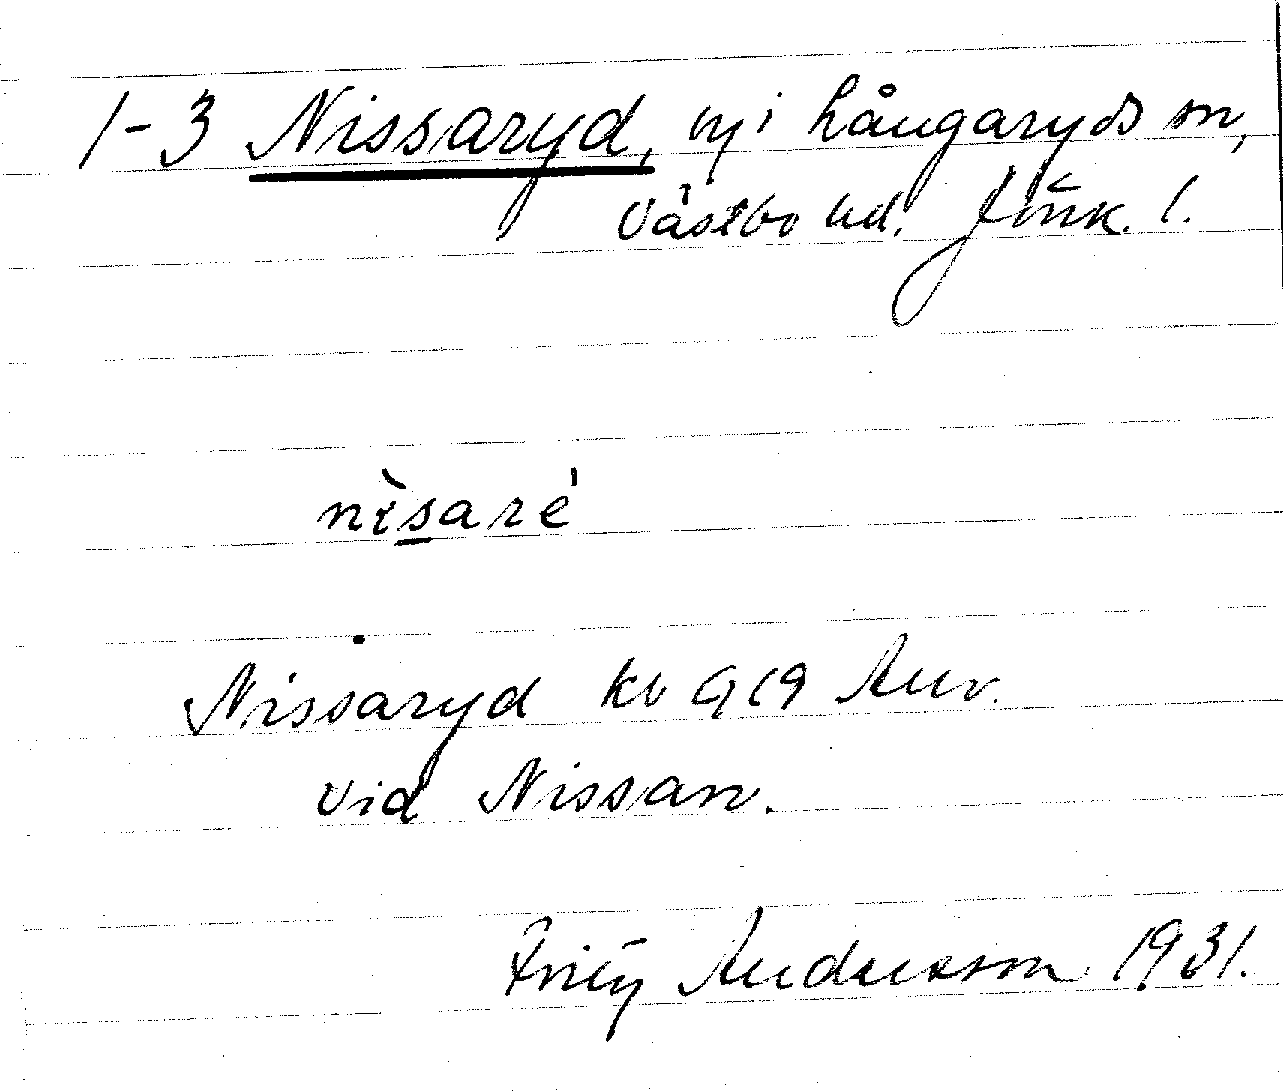 1-3 Nissaryd, nj i Långaryds sn,
Västbo hd. Jönk. l.
nìsaré
Nissaryd kv 919 Anv.
vid Nissan.
Andersson 1931.